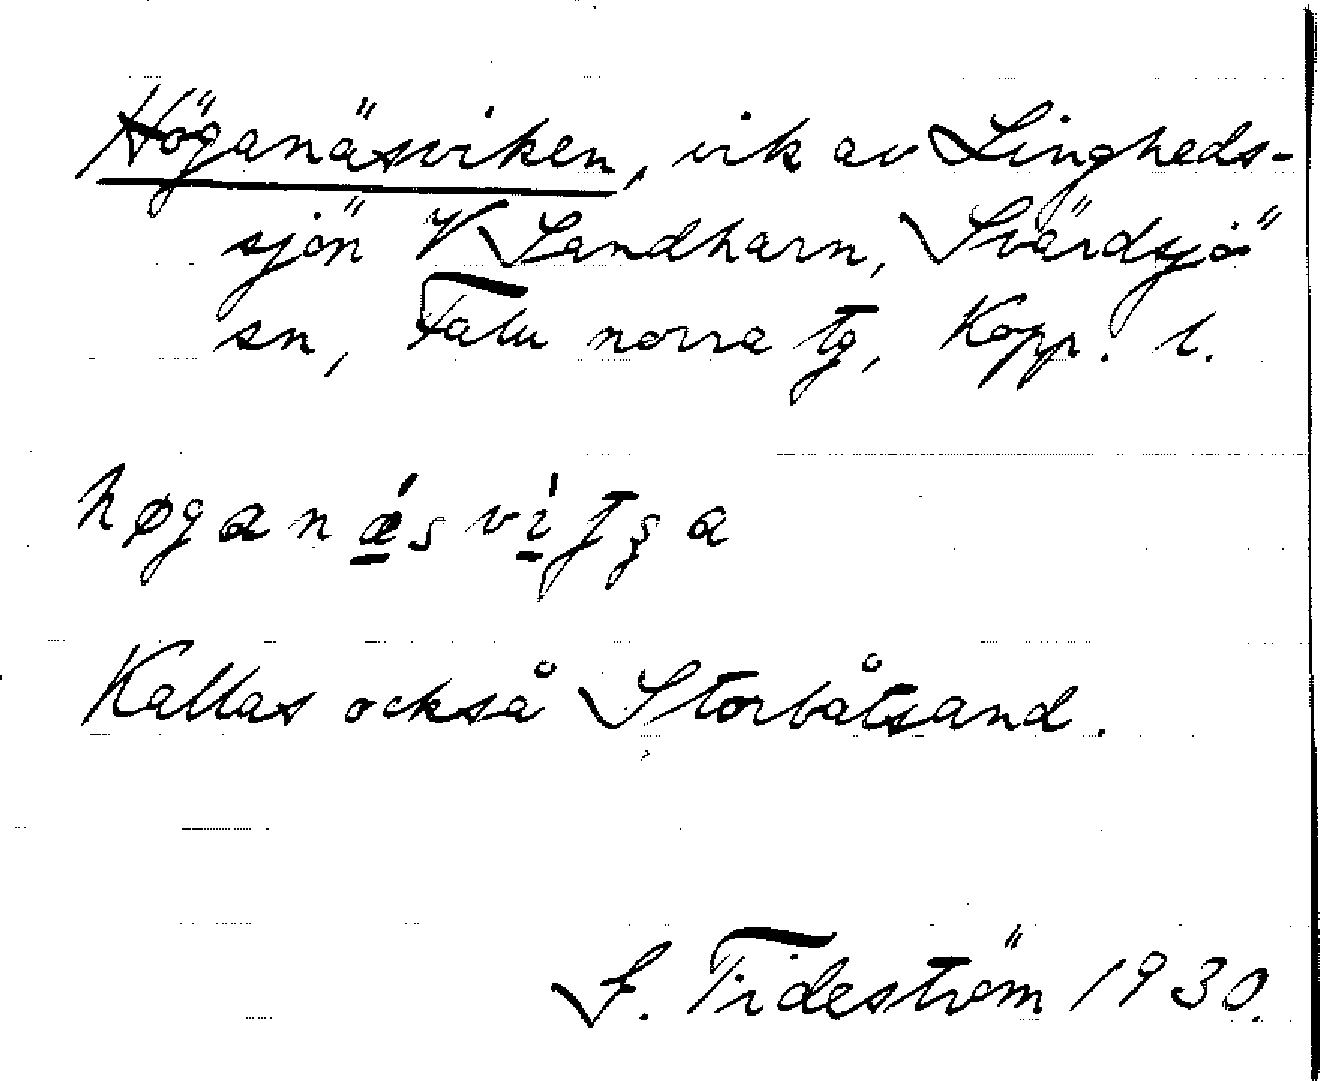 Höganäsviken, vik av Lingheds-
sjön V Sandharn, Svärdsjö
sn, Falu norra tg, Kopp. l.
høganǽsvíʈʂa
Kallas också Storbåtsand.
F. Tideström 1930.